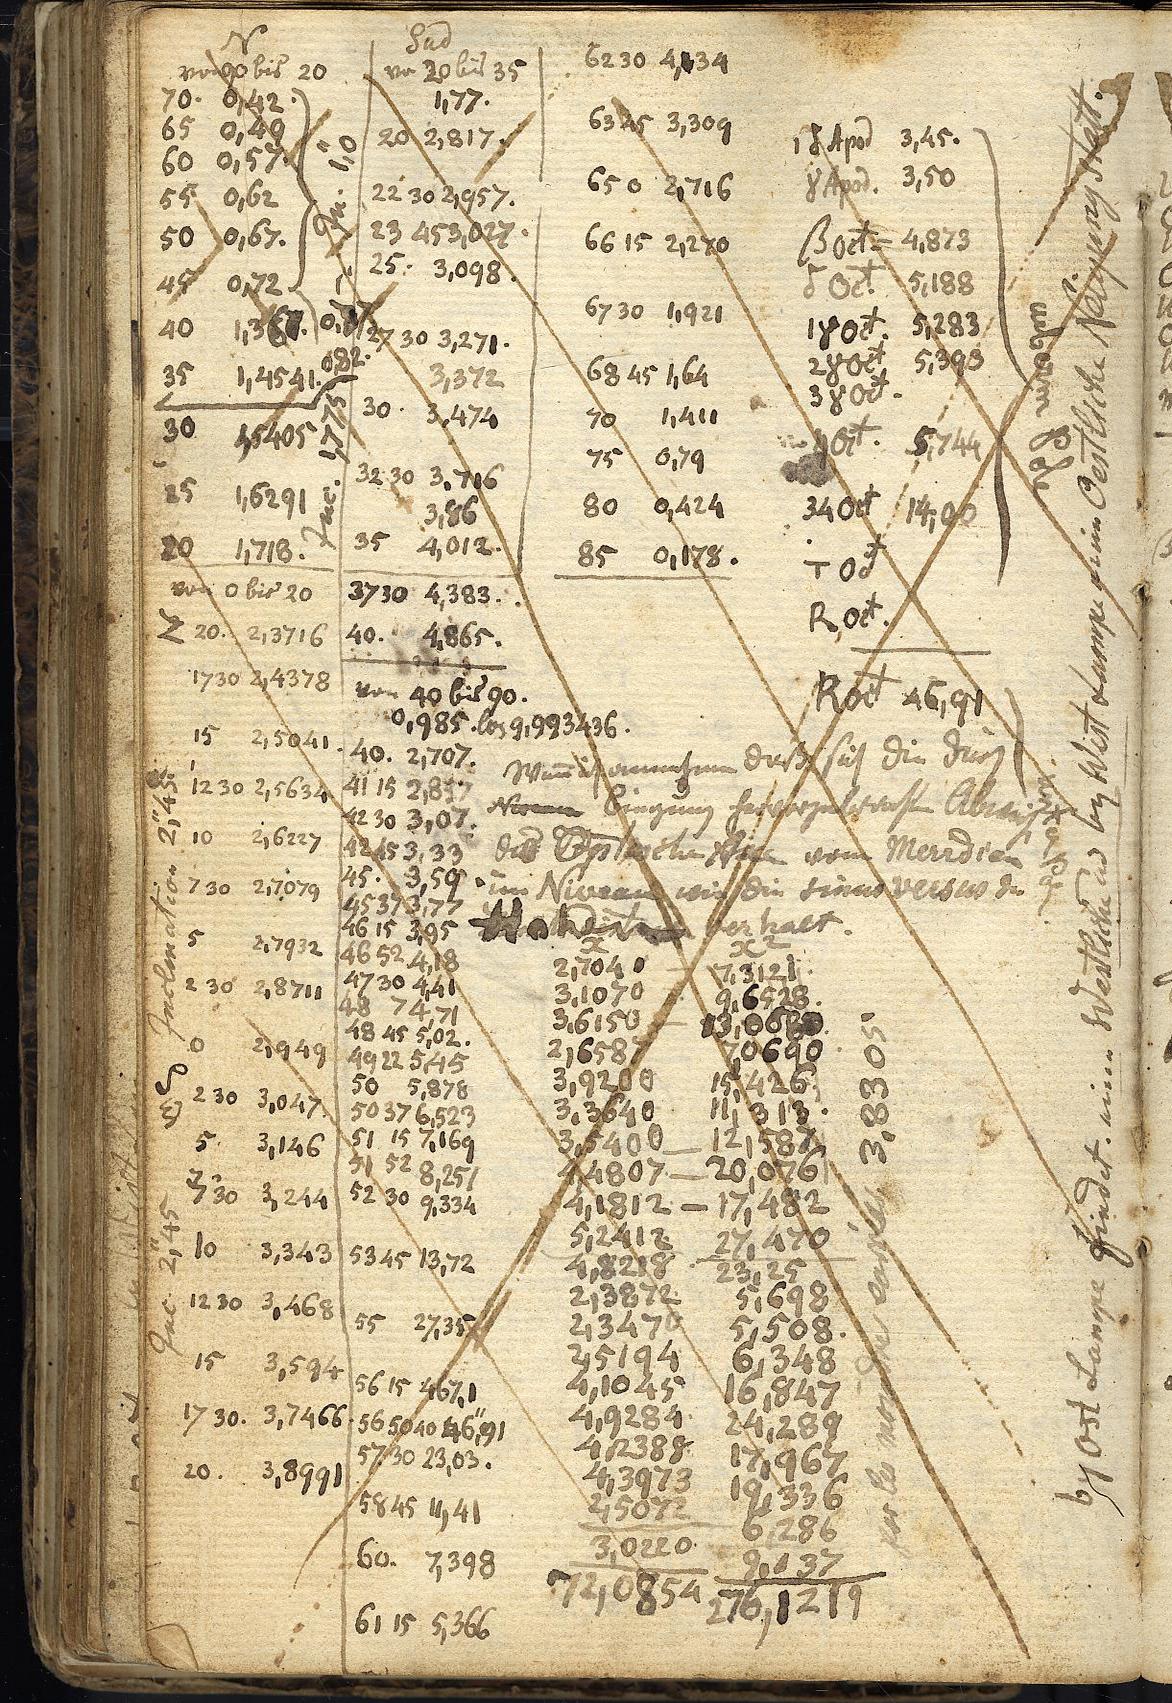 N
von 90 bis 20
70. 0,42.
65 0,49
60 0,57.
55 0,62
50 0,67.
45 0,72
40
35 1,4541.
30 1,5405
25 1,6291
20 1,718.
von 0 bis 20
20. 2,3716
1730 2,4378
15 2,5041.
1230 2,5634
10 2,6227
730 2,7079
5 2,7932
230 2,8711
0 2,949
230 3,047.
5. 3,146
730 3,244
10 3,343
1230 3,468
15 3,594
1730. 3,7466.
20. 3,8991
0,82.
Inc. 1,775
Inclination 2,"45.
Inc. 2,"45
Sud
von 20 bis 35
1,77.
20 2,817.
22 30 2,957.
23 45 3,027.
25. 3,098.
27 30 3,271.
3,372
30. 3,474
32 30 3,716
3,86
35 4,012.
3730 4,383.
40. 4,865.
von 40 bis 90.
0,985. log 9,993436.
40. 2,707.
41 15
42 30 3,07.
4245 3,33
45. 3,59
4537 3,77
46 15 3,95
46 52 4,18
4730 4,41
48 7 4,71
48 45 5,02.
4922 5,45
50 5,878
5037 6,523
51 15 7,169
51 52 8,251
52 30 9,334
5345 13,72
55 27,35
56 15 467,1
56 50 40 46",91
57 30 23,03.
5845 11,41
60. 7,398
61 15 5,366
62 30 4,134
6345 3,309
65 0 2,716
66 15 2,270
6730 1,921
68 45 1,64
70 1,411
75 0,79
80 0,424
85 0,178.
18 Apod 3,45.
γ Apod. 3,50
β Oct = 4,873
δ Oct. 5,188
1γ Oct. 5,283
2γ Oct 5,393
3γ Oct.
Oct. 5,744
34 Oct 14,00
τ Oct
R, Oct.
R Oct 46,91
annehmen daß sich die durch
Biegung
das Optische vom Meridian
im Niveau wie die sinus versus der
verhalt.
x x²
2,7040 — 7,3121.
3,1070 9,6528.
3,6150 —
2,6587 7,0690
3,9200 15,426.
3,3640 11,313.
3,5400 — 12,587
4,4807 — 20,076
4,1812 — 17,482
5,2412 27,470
4,8218 23,25
2,3872 5,698
2,3470 5,508.
2,5194 6,348
4,1045 16,847
4,9284 24,289
4,2388 17,967
4,3973 19,336
2,5072 6,286
3,0220 9,137
72,0854 276,1219
3,8305
by Ost Lampe findet. eine Westliche und by West Lampe eine Oestliche Neigung statt.